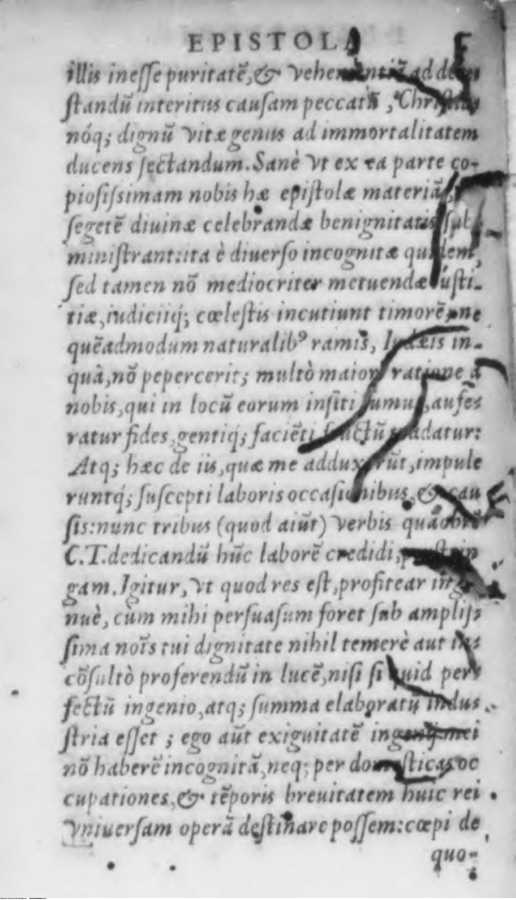 EPISTOLA
illis inesse puritatē,& vehementiā ad dete
standū interitus causam peccatū, Christus
nóq; dignū vitæ genus ad immortalitatem
ducens sectandum. Sanè vt ex ea parte co-
piosissimam nobis hæ epistolæ materiā,
segetē diuinæ celebrandæ benignitatis sub
ministrant: ita è diuerso incognitæ quidem,
sed tamen nō mediocriter metuendæ iusti-
tiæ, iudiciiq; cœlestis incutiunt timorē, ne
quēadmodum naturalibꝰ ramis, Iudæis in-
quā, nō pepercerit; multò maiori ratione à
nobis, qui in locū eorum insiti sumus, aufe-
ratur fides, gentiq; faciēti fructū tradatur:
Atq; hæc de iis, quæ me adduxerūt, impule
runtq́; suscepti laboris occasionibus, & cau
sis: nunc tribus (quod aiūt) verbis quāobrē
C.T. dedicandū hūc laborē credidi,
gam. Igitur, vt quod res est, profitear inge
nuè, cùm mihi persuasum foret sub amplis-
sima noīs tui dignitate nihil temerè aut in-
cōsultò proferendū in lucē, nisi si quid per-
fectū ingenio, atq; summa elaboratū indus
stria esset; ego aūt exiguitatē ingenij mei
nō haberē incognitā, neq; per domesticas oc
cupationes, & tēporis breuitatem huic rei
vniuersam operā destinare possem: cœpi de
quo-